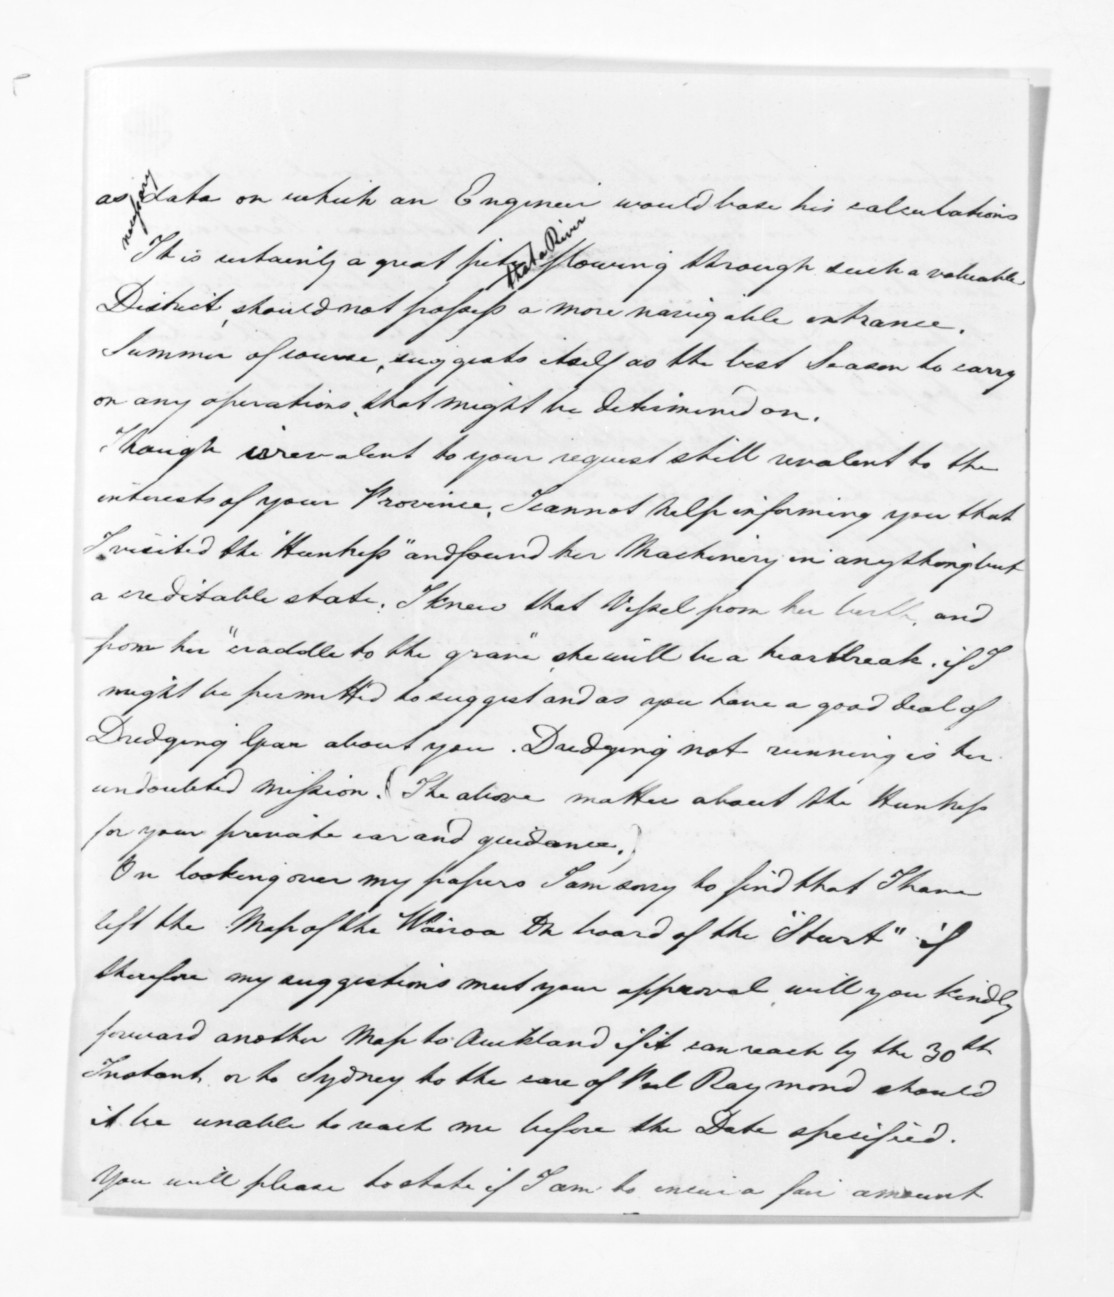 as necessary data on which an Engineer would base his calculations
It is certainly a great pity that a River flowing through such a valuable
District, should not possess a more navigable entrance.
Summer of course, suggests itself as the best Season to carry
on any operations, that might be determined on.
Though irrevalent to your request still revalent to the
interests of your Province, I cannot help informing you that
I visited the "Huntress" and found her Machinery in anything but
a creditable state. I knew that Vessel from her birth, and
from her "craddle to the grave" she will be a heartbreak. if I
might be permitted to suggest and as you have a good deal of
Dredging Gear about you. Dredging not running is her
undoubted mission. (The above matter about the Huntress
for your private ear and guidance.)
On looking over my papers I am sorry to find that I have
left the Map of the Wairoa On board of the "Sturt" if
therefore my suggestions meet your approval, will you kindly
forward another Map to Auckland if it can reach by the 30th
Instant, or to Sydney to the care of Raymond should
it be unable to reach me before the Date specified.
You will please to state if I am to incur a fair amount